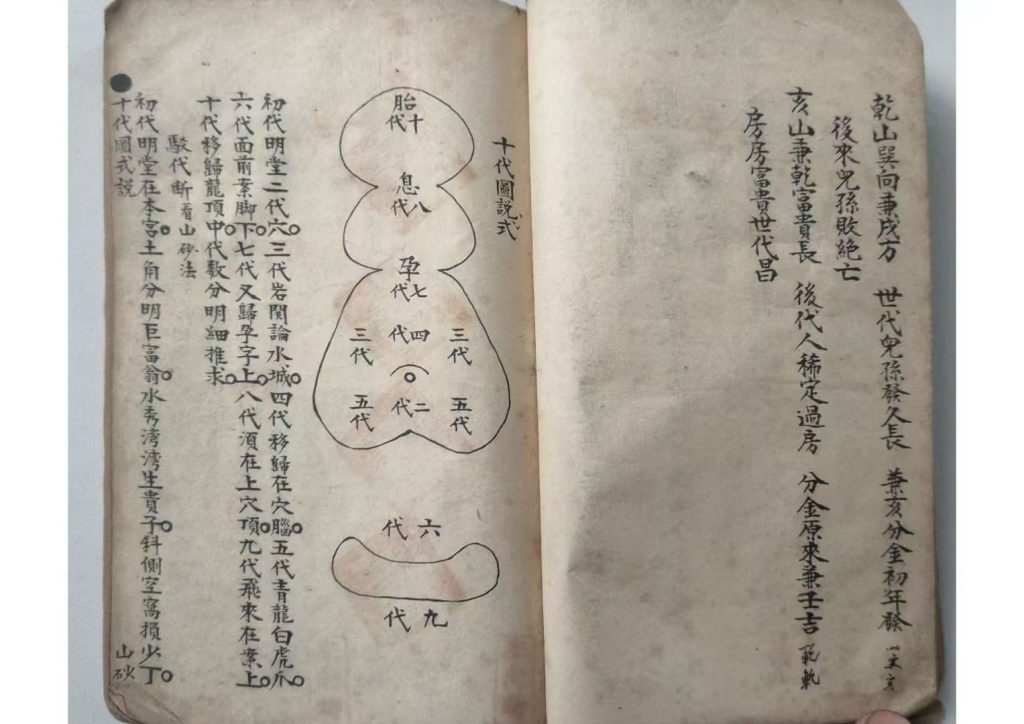 乾山巽向兼戌方 世代兒孫發久長 兼亥分金初年發
後來兒孫敗絕亡
亥山兼乾富貴長 後代人稀定過房 分金原來兼壬吉
房房富貴世代昌
十代圖説式
胎
十代
息
八代
孕
七代
三代
四代
三代
五代
二代
五代
六代
九代
初代明堂二代穴。三代岩関論水城。四代移歸在穴腦。五代青龍白虎爪。
六代面前案脚下。七代又歸孕字上。八代湏在上穴頂。九代飛來在案上。
十代移歸龍頂中。代數分明細推求。
駁代断 看山砂法
初代明堂在本宮。土角分明巨富翁。水秀湾湾生貴子。斜側空窩損少丁。
十代圖式説
山砂